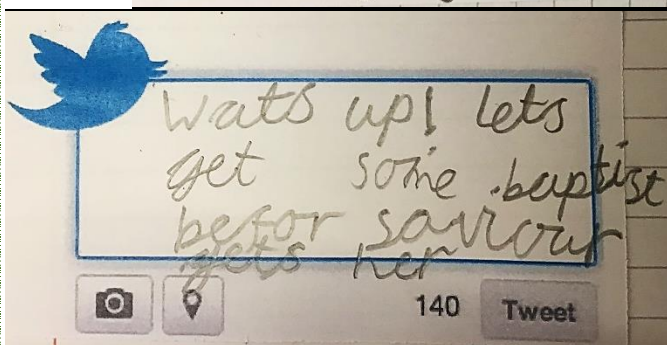 Wats up! lets
get some baptist
befor saviour
gets her
140 Tweet